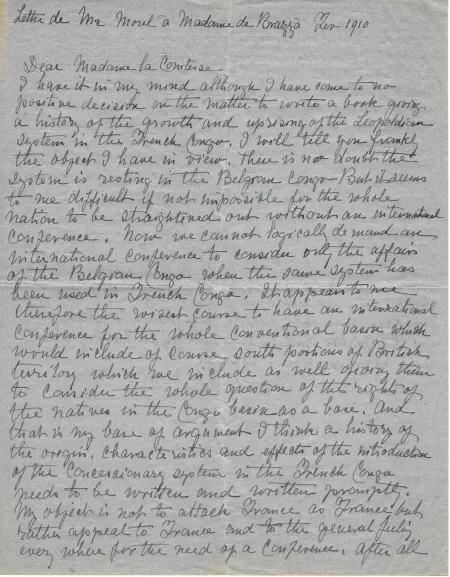 Lettre de Mr Morel a Madame de Brazzà Fev 1910
Dear Madame la Comtesse
I have it in my mind although I have come to no
positive decision on the matter to write a book giving
a history of the growth and uprising of the Leopoldian
system in the French Congo. I will tell you frankly
the object I have in view. There is no doubt the
system is resting in the Belgian Congo - But it seems
to me difficult if not impossible for the whole
nation to be straightened out without an international
conference. Now we cannot logically demand an
international conference to consider only the affairs
of the Belgian Congo when the same system has
been used in French Congo. It appears to me
therefore the wisest course to have an international
conference for the whole conventional basin which
would include of course south portions of British
territory which we include as well giving them
to consider the whole question of the rights of
the natives in the Congo basin as a base. And
that is my base of argument I think a history of
the origin, characteristics and effects of the introduction
of the concessionary system in the French Congo
needs to be written and written promptly.
My object is not to attack France as France but
rather appeal to France and to the general feeling
every where for the need of a conference. After all